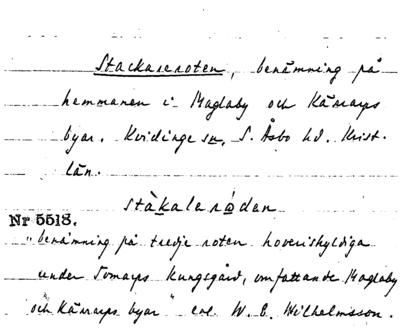 Stackareroten, benämning på
hemmanen i Maglaby och Kärraps
byar. Kvidinge sn, S. Åsbo hd. Krist.
län.
stàkalerødan
Nr 5513.
"benämning på tredje roten hoveriskyldiga
under Tomarps Kungsgård, omfattande Maglaby
och Kärraps byar" enl W. E. Wilhelmsson.